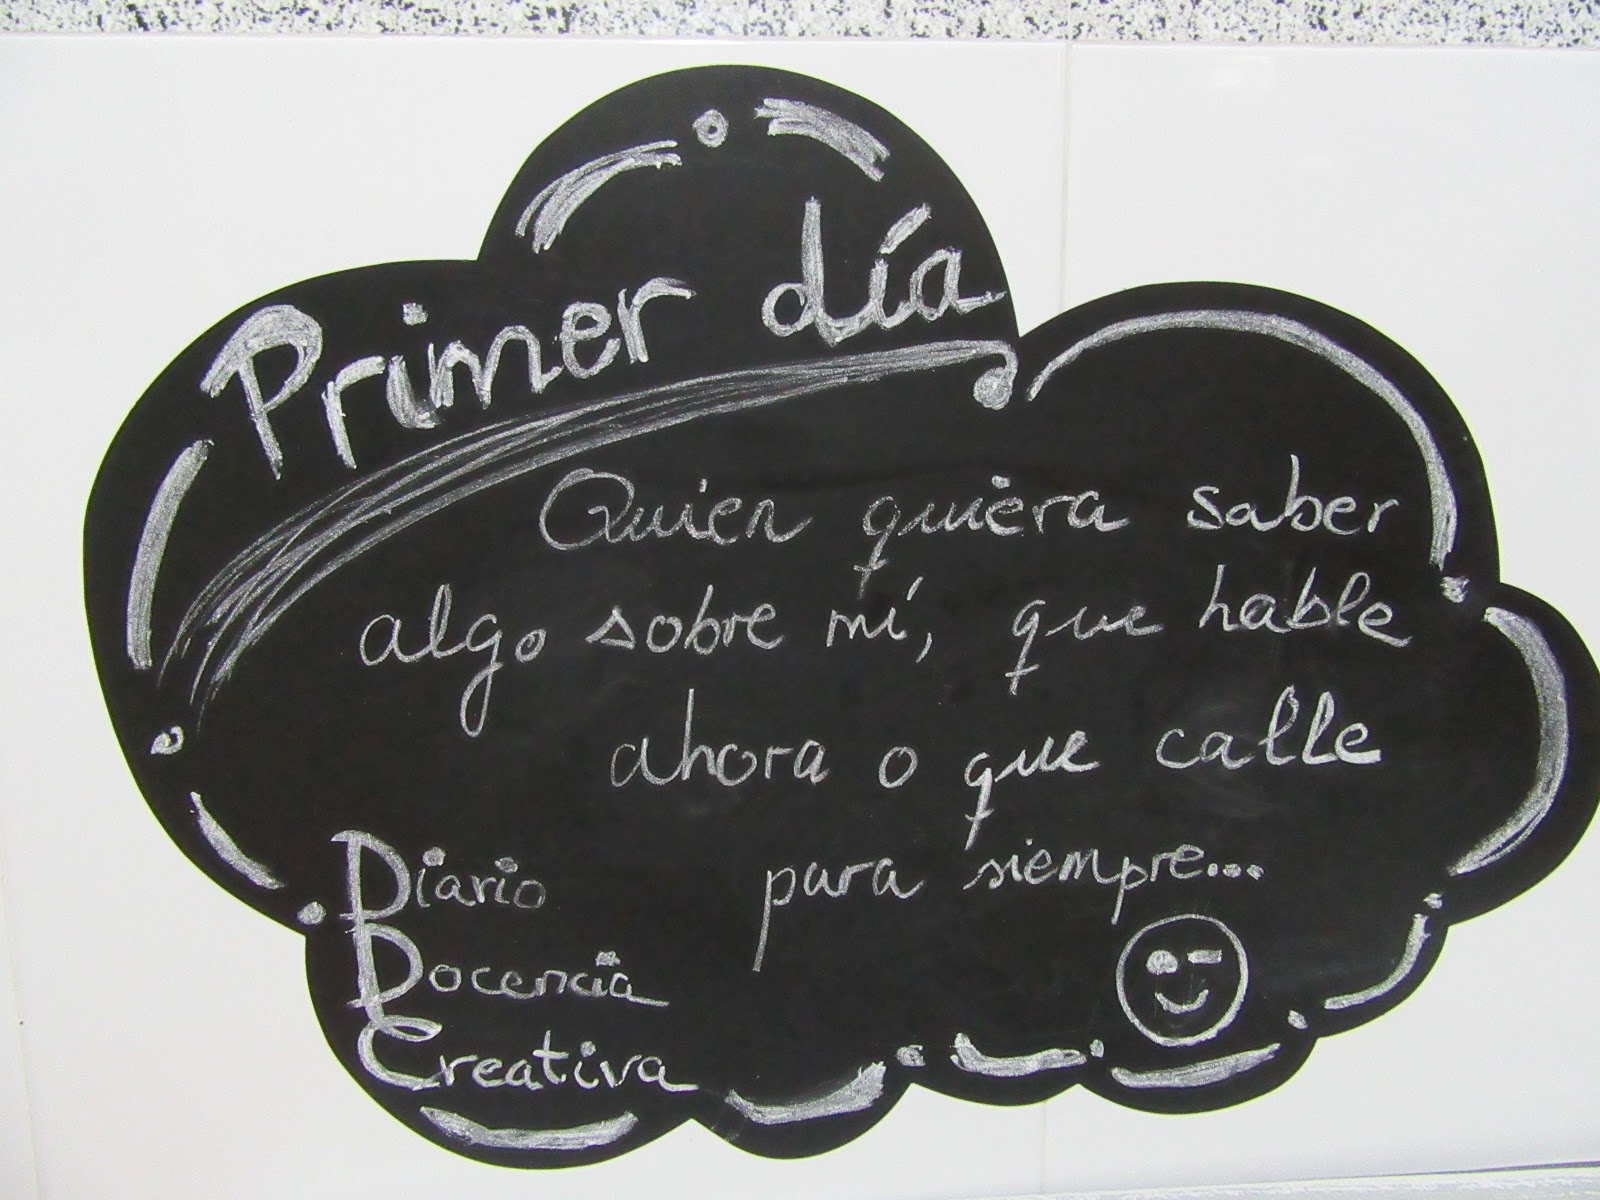 Primer día
Quien quiera saber
algo sobre mí, que hable
ahora o que calle
para siempre...
Diario
Docencia
Creativa